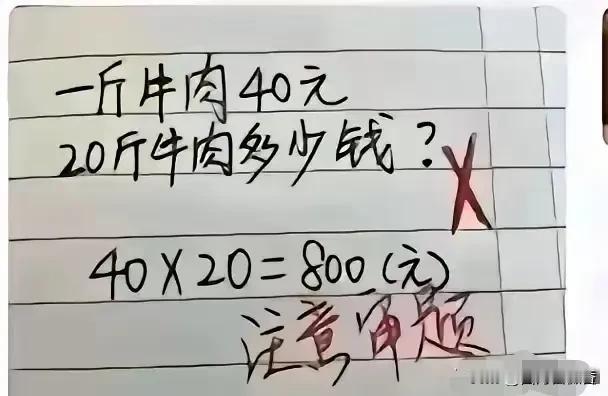 一斤牛肉40元
20斤牛肉多少钱？
X
40X20=800(元)
注意审题